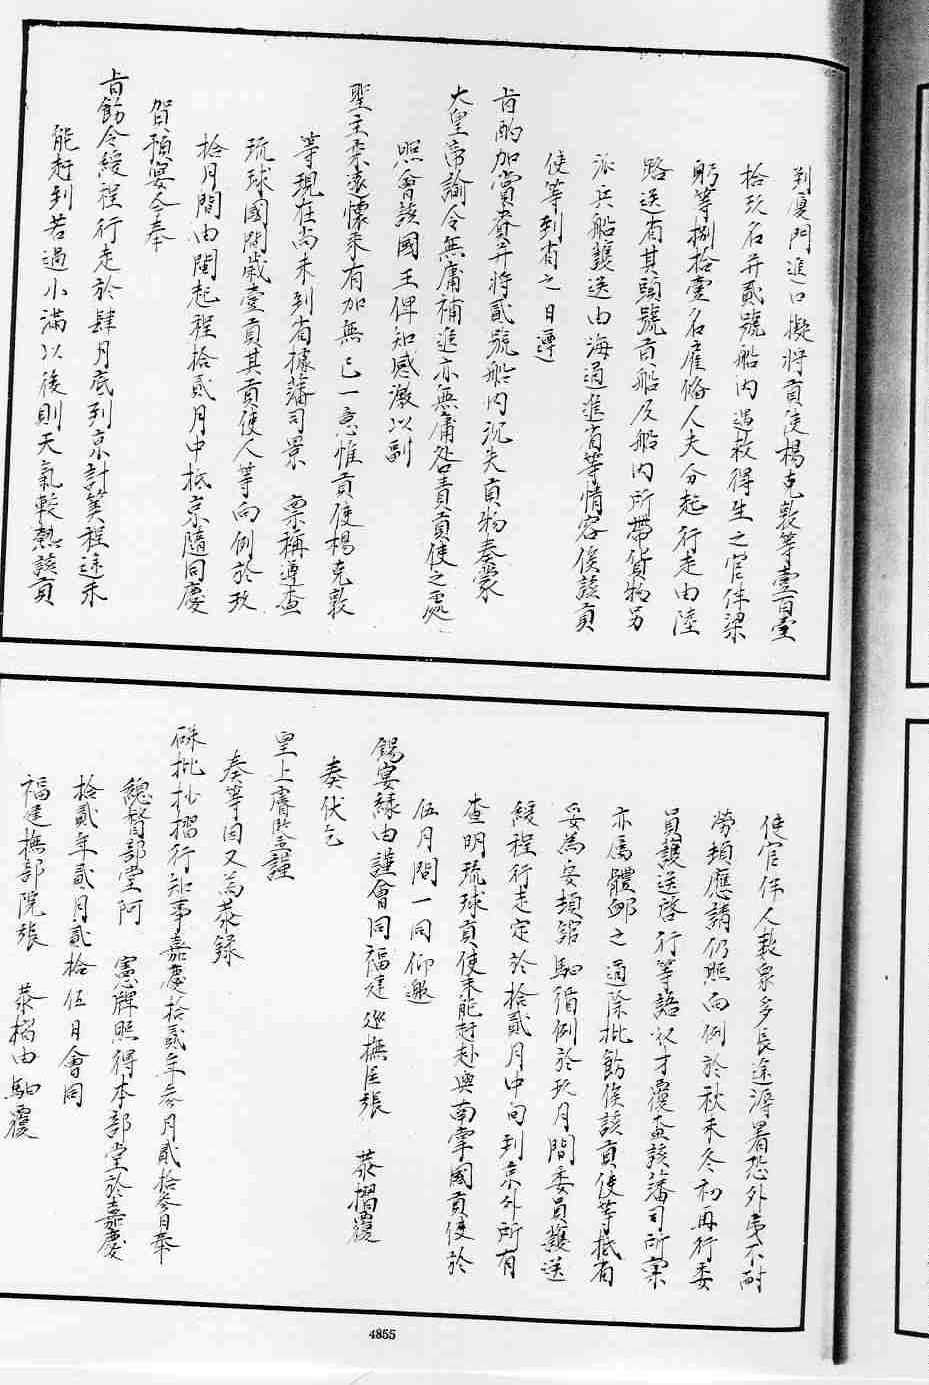 到廈門進口擬將貢使楊克敦等壹百壹
拾玖名并貳號船內過救得生之官伴梁
躬等捌拾壹名雇備人夫分起行走由陸
路送省其頭號貢船及船內所帶貨物另
派兵船護送由海道進省等情容俟該貢
使等到省之日遵
旨酌加賞賚并將貳號船內沉失貢物奏蒙
大皇帝諭令無庸補進亦無庸咎責貢使之處
照會該國王俾知感激以副
聖主柔遠懷來有加無已一意惟貢使楊克敦
等現在尚未到省據藩司景 稟稱遵查
琉球國間歲壹貢其貢使人等向例於玖
拾月間由閩起程拾貳月中抵京隨同慶
賀預宴今奉
旨飭令緩程行走於肆月底到京計算程途未
能赶到若過小滿以後則天氣較熱該貢
使官伴人數眾多長途溽暑恐外夷不耐
勞頓應請仍照向例於秋末冬初再行委
員護送啓行等語 覆查該藩司所稟
亦屬體卹之道除批飭俟該貢使等抵省
妥為安頓館驲循例於玖月間委員護送
緩程行走定於拾貳月中旬到京外所有
查明琉球貢使未能赶赴與南掌國貢使於
伍月間一同仰邀
錫宴緣由謹會同福建巡撫臣張 恭摺覆
奏伏乞
皇上睿鑒謹
奏等因又為恭錄
硃批抄摺行知事嘉慶拾貳年叁月貳拾叁日奉
總督部堂阿 憲牌照得本部堂於嘉慶
拾貳年貳月貳拾伍日會同
福建撫部院張 恭摺由驲覆
4855